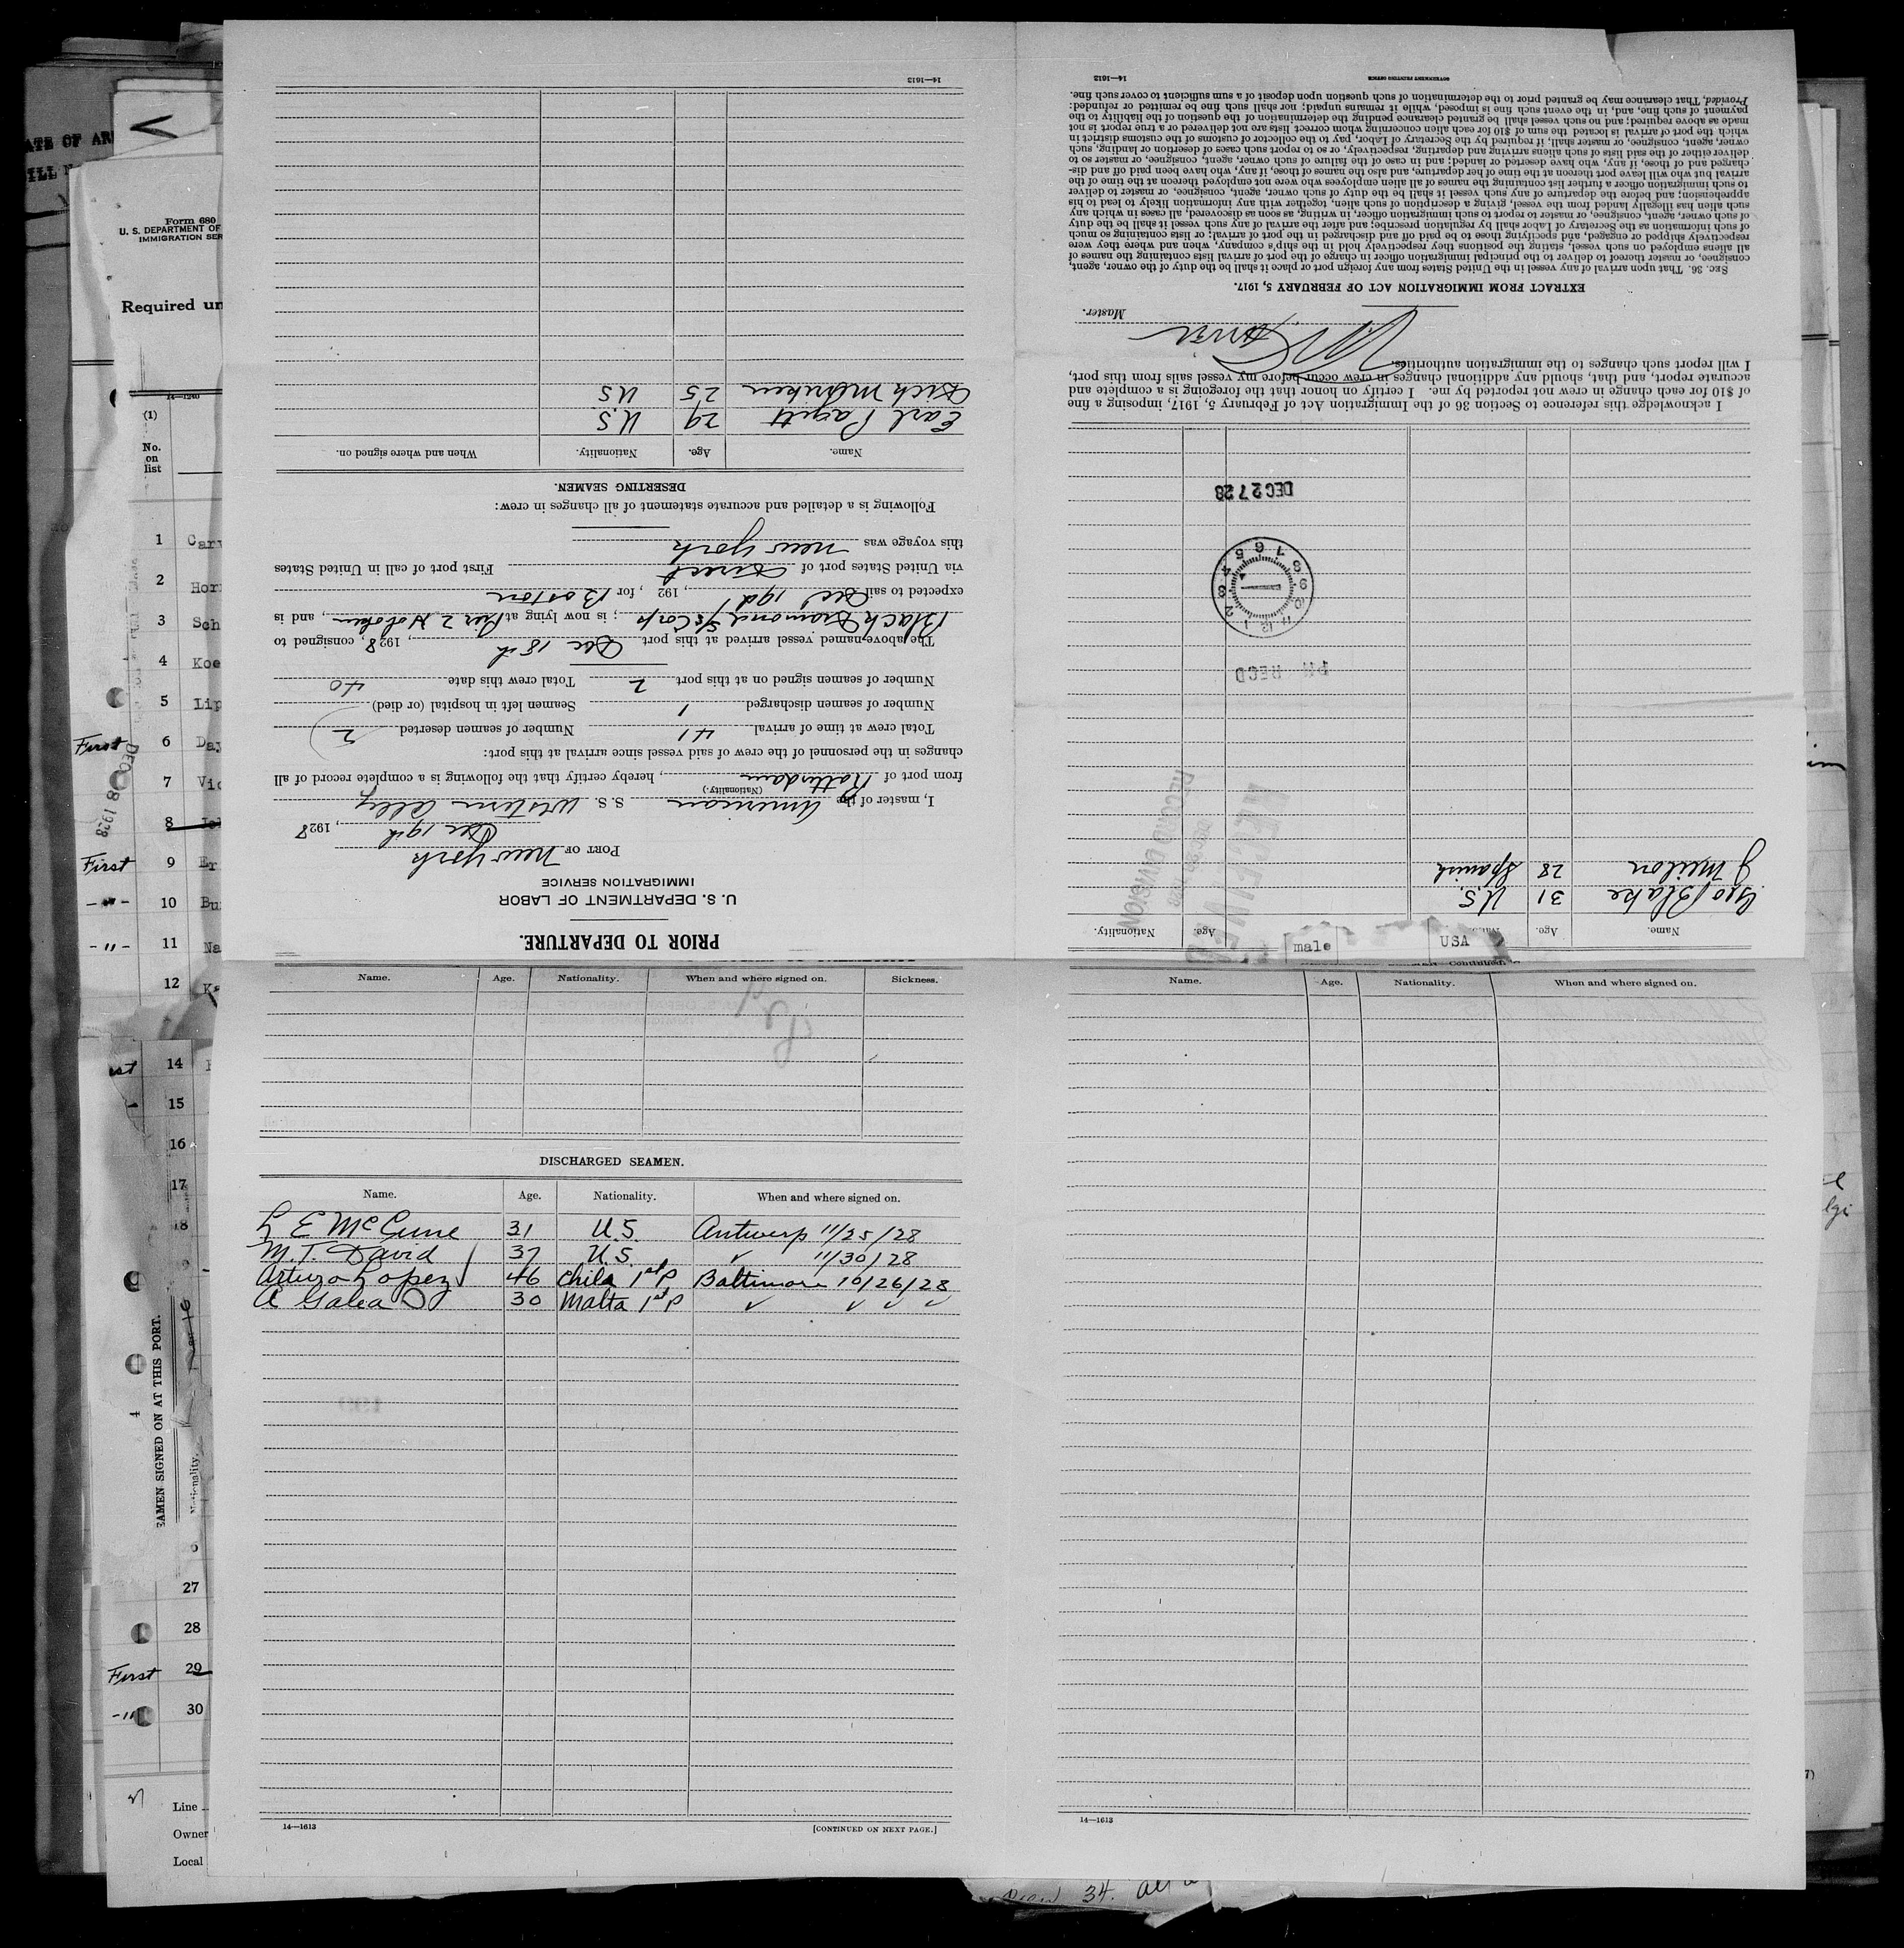 PRIOR TO DEPARTURE.
U. S. DEPARTMENT OF LABOR
IMMIGRATION SERVICE
PORT OF New York
Dec 19th, 1928
I, master of the American S. S. Western Ally
(Nationality.)
from port of Rotterdam, hereby certify that the following is a complete record of all
changes in the personnel of the crew of said vessel since arrival at this port:
Total crew at time of arrival 41 Number of seamen deserted 2
Number of seamen discharged 1 Seamen left in hospital (or died)
Number of seamen signed on at this port 2 Total crew this date 40
The above-named vessel arrived at this port Dec 18th, 1928, consigned to
Black Diamond S/S Corp; is now lying at Pier 2 Hoboken, and is
expected to sail Dec 19th, 192 , for Boston
via United States port of Direct First port of call in United States
this voyage was New York
Following is a detailed and accurate statement of all changes in crew:
DESERTING SEAMEN.
Name. Age. Nationality. When and where signed on.
Earl 29 U.S
25 US
14—1613
Name. Age. Age. Nationality.
Geo Blake 31 U.S.
J Meilan 28 Spanish
male
USA
RECEIVED
DEC 28 1928
RECORD DIVISION
PM RECD
12 1 2 3 4 5 6 7 8 9 10 11
DEC 27 28
I acknowledge this reference to Section 36 of the Immigration Act of February 5, 1917, imposing a fine
of $10 for each change in crew not reported by me. I certify on honor that the foregoing is a complete and
accurate report, and that, should any additional changes in crew occur before my vessel sails from this port,
I will report such changes to the immigration authorities.
Master.
EXTRACT FROM IMMIGRATION ACT OF FEBRUARY 5, 1917.
SEC. 36. That upon arrival of any vessel in the United States from any foreign port or place it shall be the duty of the owner, agent,
consignee, or master thereof to deliver to the principal immigration officer in charge of the port of arrival lists containing the names of
all aliens employed on such vessel, stating the positions they respectively hold in the ship's company, when and where they were
respectively shipped or engaged, and specifying those to be paid off and discharged in the port of arrival; or lists containing so much
of such information as the Secretary of Labor shall by regulation prescribe; and after the arrival of any such vessel it shall be the duty
of such owner, agent, consignee, or master to report to such immigration officer, in writing, as soon as discovered, all cases in which any
such alien has illegally landed from the vessel, giving a description of such alien, together with any information likely to lead to his
apprehension; and before the departure of any such vessel it shall be the duty of such owner, agent, consignee, or master to deliver
to such immigration officer a further list containing the names of all alien employees who were not employed thereon at the time of the
arrival but who will leave port thereon at the time of her departure, and also the names of those, if any, who have been paid off and dis-
charged and of those, if any, who have deserted or landed; and in case of the failure of such owner, agent, consignee, or master so to
deliver either of the said lists of such aliens arriving and departing, respectively, or so to report such cases of desertion or landing, such
owner, agent, consignee, or master shall, if required by the Secretary of Labor, pay to the collector of customs of the customs district in
which the port of arrival is located the sum of $10 for each alien concerning whom correct lists are not delivered or a true report is not
made as above required; and no such vessel shall be granted clearance pending the determination of the question of the liability to the
payment of such fine, and, in the event such fine is imposed, while it remains unpaid; nor shall such fine be remitted or refunded:
Provided, That clearance may be granted prior to the determination of such question upon deposit of a sum sufficient to cover such fine.
14—1613 GOVERNMENT PRINTING OFFICE
Name. Age. Nationality. When and where signed on. Sickness.
DISCHARGED SEAMEN.
Name. Age. Nationality. When and where signed on.
L E McCune 31 U.S. Antwerp 11/25/28
M. T. David 37 U.S. " 11/30/28
Arturo Lopez 46 Chile 1st P Baltimore 10/26/28
A Galea 30 Malta 1st P " " " "
14—1613 [CONTINUED ON NEXT PAGE.]
Name. Age. Nationality. When and where signed on.
14—1613
Form 680
U. S. DEPARTMENT OF
IMMIGRATION SER
Required un
14—1240
(1)
No.
on
list
1
2 Hor
3 Sch
4 Koe
5 Lip
First 6 Day
7 Vic
8
First 9 Er
-"- 10 Bu
-"- 11 Na
12
14
15
16
17
18
27
28
First 29
-"- 30
DEC 28 1928
SEAMEN SIGNED ON AT THIS PORT.
Nationality.
Line
Owner
Local
34.